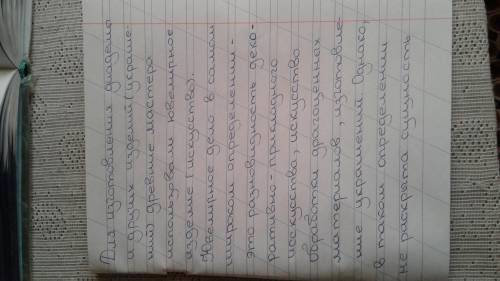 Для изготовления диадемы
и других изделий (украше-
ний) древние мастера
использовали ювелирное
изделие (искусство).
Ювелирное дело в самом
широком определении -
это разновидность деко-
ративно-прикладного
искусства, искусство
обработки драгоценных
материалов, изготовле-
ние украшений. Однако,
в таком определении
не раскрыта сущность